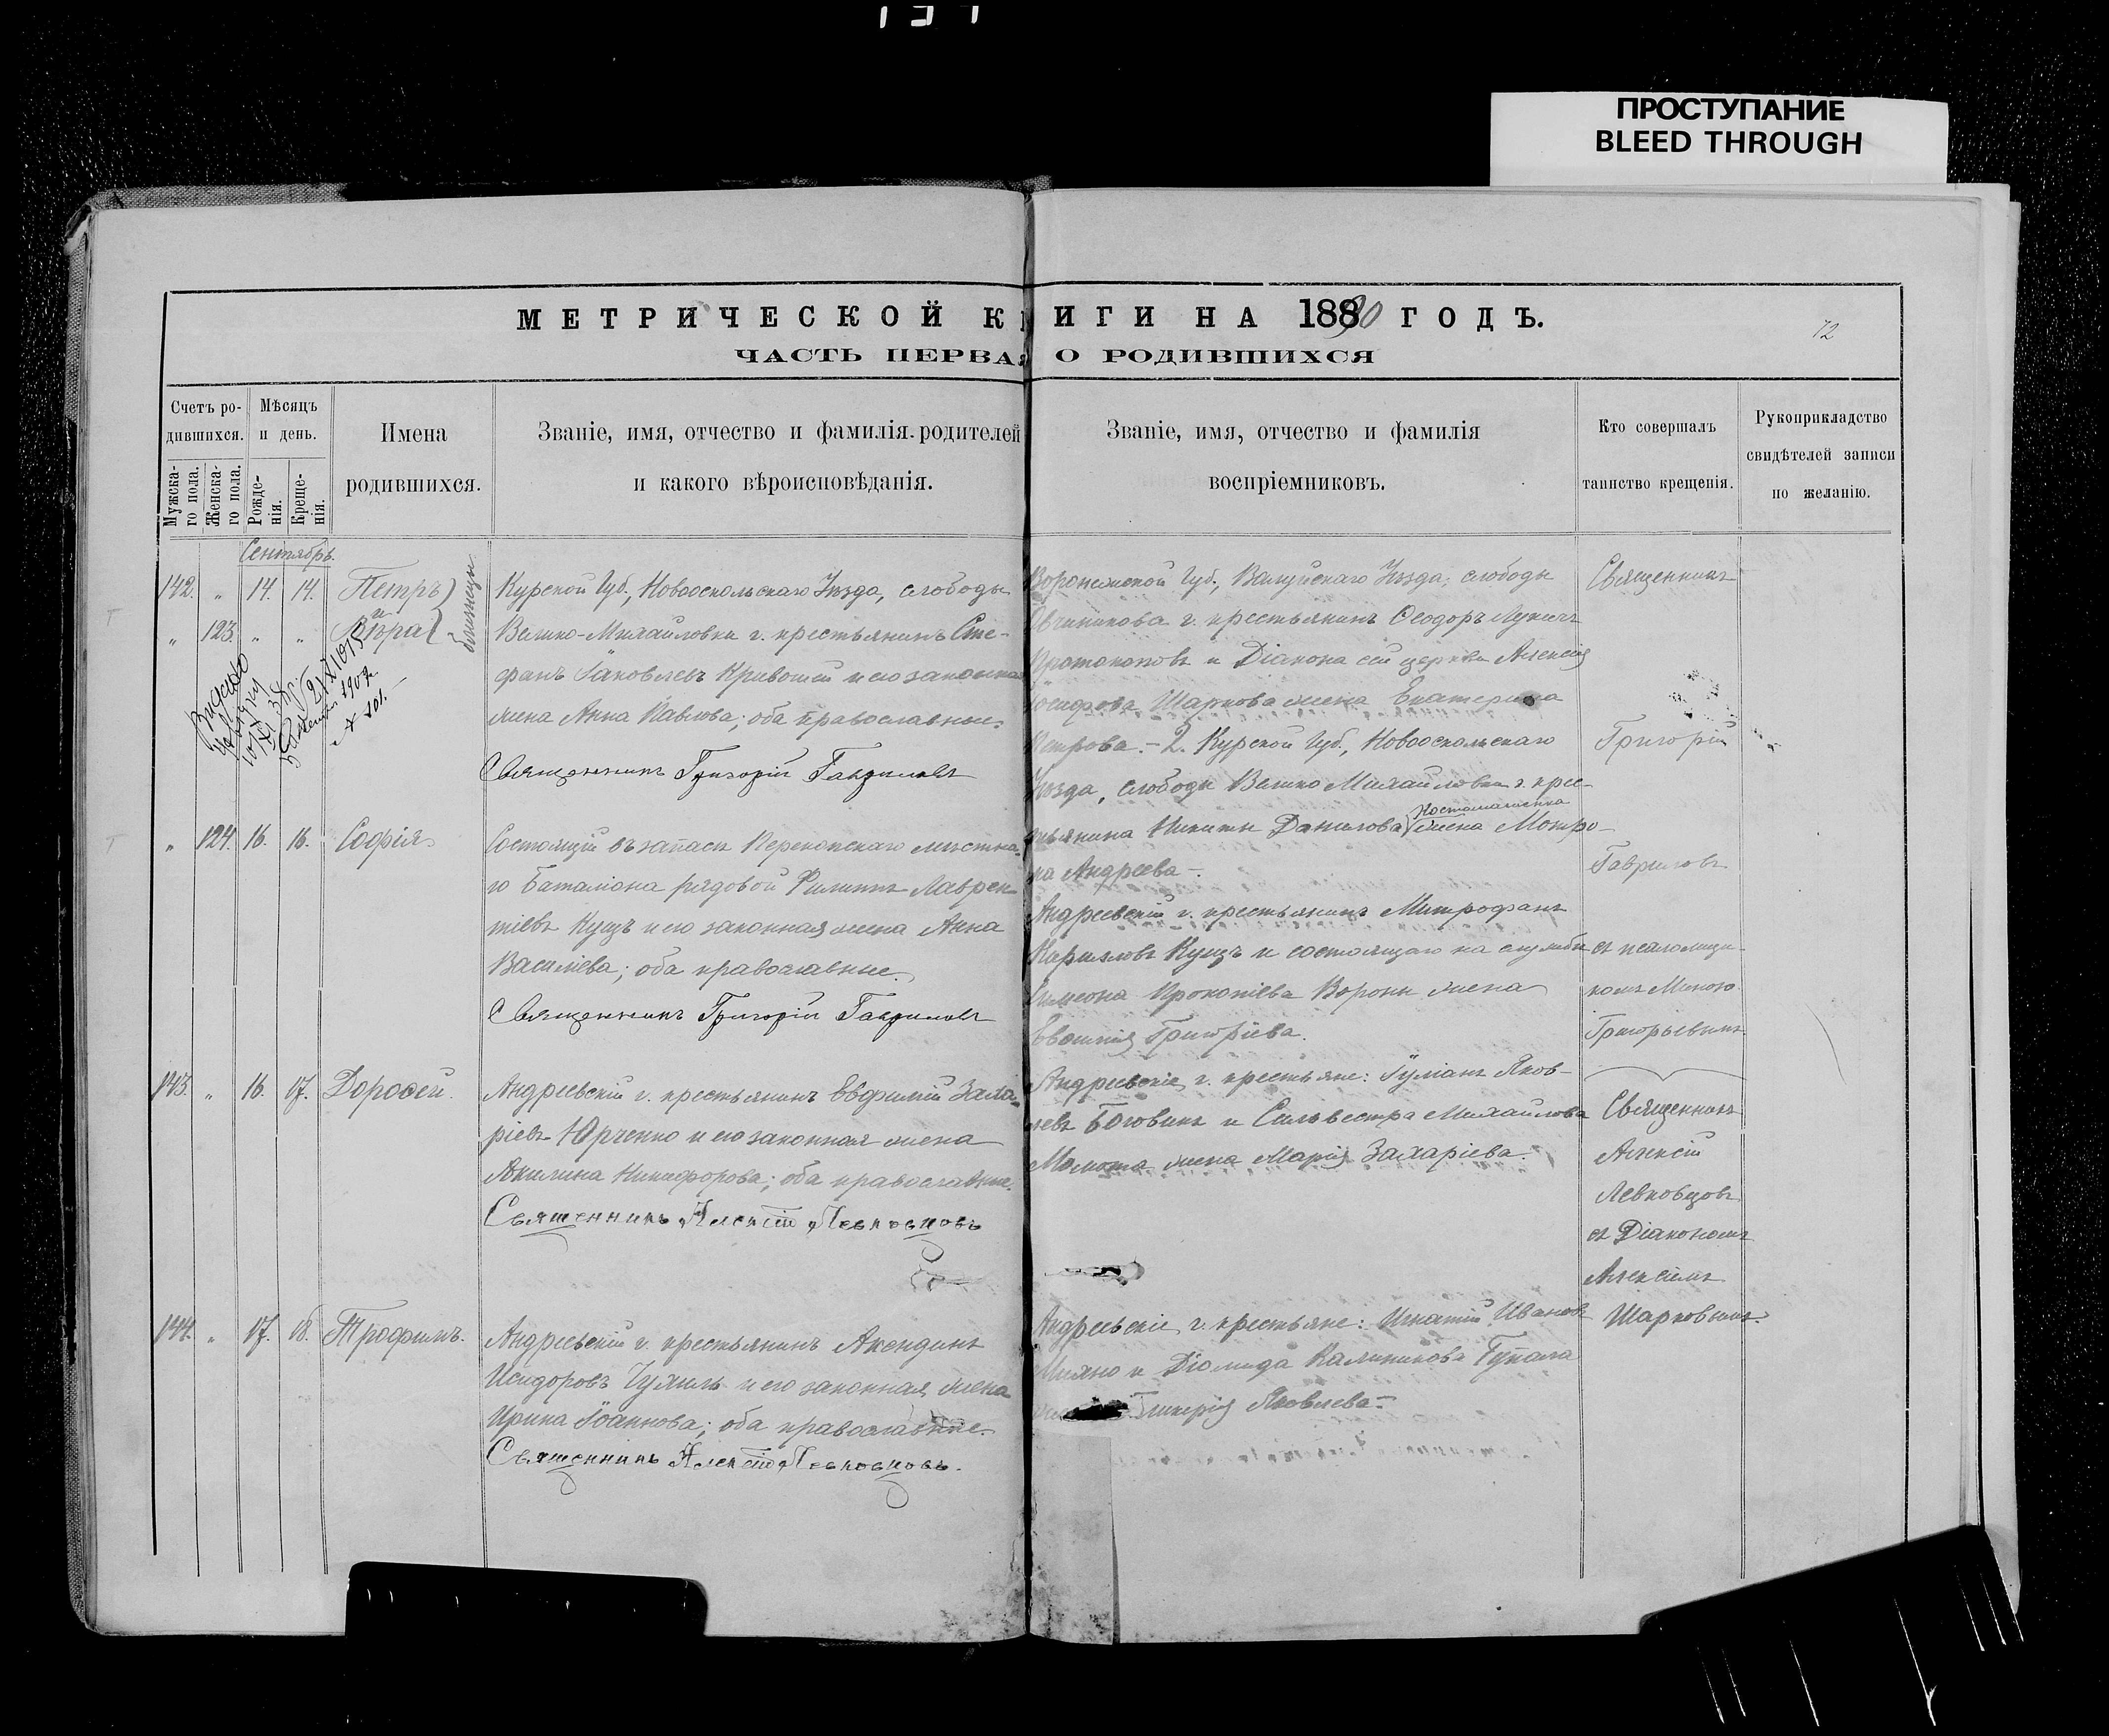 ПРОСТУПАНИЕ
BLEED THROUGH
МЕТРИЧЕСКОЙ КНИГИ НА 1890 ГОДЪ.
72
ЧАСТЬ ПЕРВАЯ О РОДИВШИХСЯ
Счетъ ро-
дившихся.
Мужска-
го пола.
Женска-
го пола.
Мѣсяцъ
и день.
Рожде-
нія.
Креще-
нія.
Имена
родившихся.
Званіе, имя, отчество и фамилія родителей
и какого вѣроисповѣданія.
Званіе, имя, отчество и фамилія
воспріемниковъ.
Кто совершалъ
таинство крещенія.
Рукоприкладство
свидѣтелей записи
по желанію.
Сентябрь.
142. " 14. 14. Петръ
и
" 123. " " Вѣра
близнецы
Курской Губ., Новооскольскаго Уѣзда, слободы
Велико-Михайловки г. крестьянинъ Сте-
фанъ Іаковлевъ Кривошей и его законная
жена Анна Павлова; оба православные.
Священникъ Григорій Гавриловъ
Воронежской Губ., Валуйскаго Уѣзда, слободы
Овчиникова г. крестьянинъ Ѳеодоръ Лукичъ
Протопоповъ и Діакона сей церкви Алексія
Іосифова Шаркова жена Екатерина
Петрова. - 2. Курской Губ., Новооскольскаго
Уѣзда, слободы Велико Михайловки г. крес-
тьянина Никиты Данилова жена Матро-
на Андреева -.
Священникъ
Григорій
Гавриловъ
съ псаломщи-
комъ
Григорьевымъ
" 124. 16. 16. Софія
Состоящій въ запасѣ Перекопскаго мѣстна-
го баталіона рядовой Филиппъ Лаврен-
тіевъ Кущъ и его законная жена Анна
Василіева; оба православные.
Священникъ Григорій Гавриловъ
Андреевскій г. крестьянинъ Митрофанъ
Кирилловъ Кущъ и состоящаго на службѣ
Симеона Прокопіева Вороны жена
Григоріева.
143. " 16. 17. Дороѳей.
Андреевскій г. крестьянинъ Евфимій Заха-
ріевъ Юрченко и его законная жена
Акилина Никифорова; оба православные.
Священникъ Алексій Левковцовъ
Андреевскіе г. крестьяне: Іуліанъ Яков-
левъ Боговикъ и Сильвестра Михайлова
Момота жена Марія Захаріева.
Священникъ
Алексій
Левковцовъ
съ Діакономъ
Алексіемъ
Шарковымъ.
144. " 17. 18. Трофимъ.
Андреевскій г. крестьянинъ Акендинъ
Исидоровъ Чумиль и его законная жена
Ирина Іоаннова; оба православные.
Священникъ Алексій Левковцовъ.
Андреевскіе г. крестьяне: Игнатій Ивановъ
и Діомида Калиникова Гупала
Гликерія Яковлева -